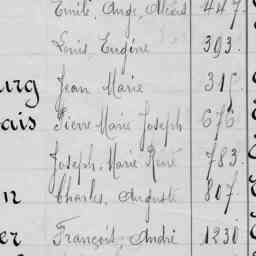 Emile, Ange, 447.
Louis, Eugène 393.
urg Jean Marie 315
ais Pierre Marie Joseph 676
Joseph, Marie René 783.
n Charles, Auguste 807
er François, André 1230